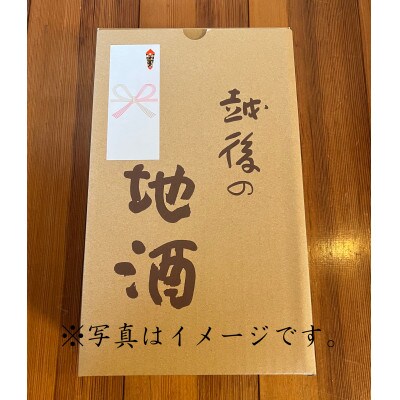 越後の
地酒
※写真はイメージです。